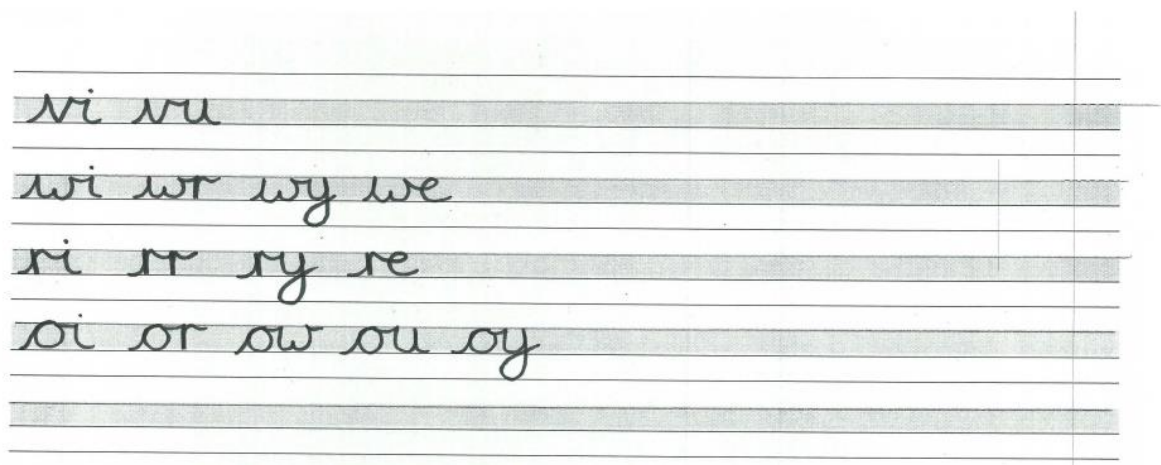 vi vu
wi wr wy we
ri rr ry re
oi or ow ou oy